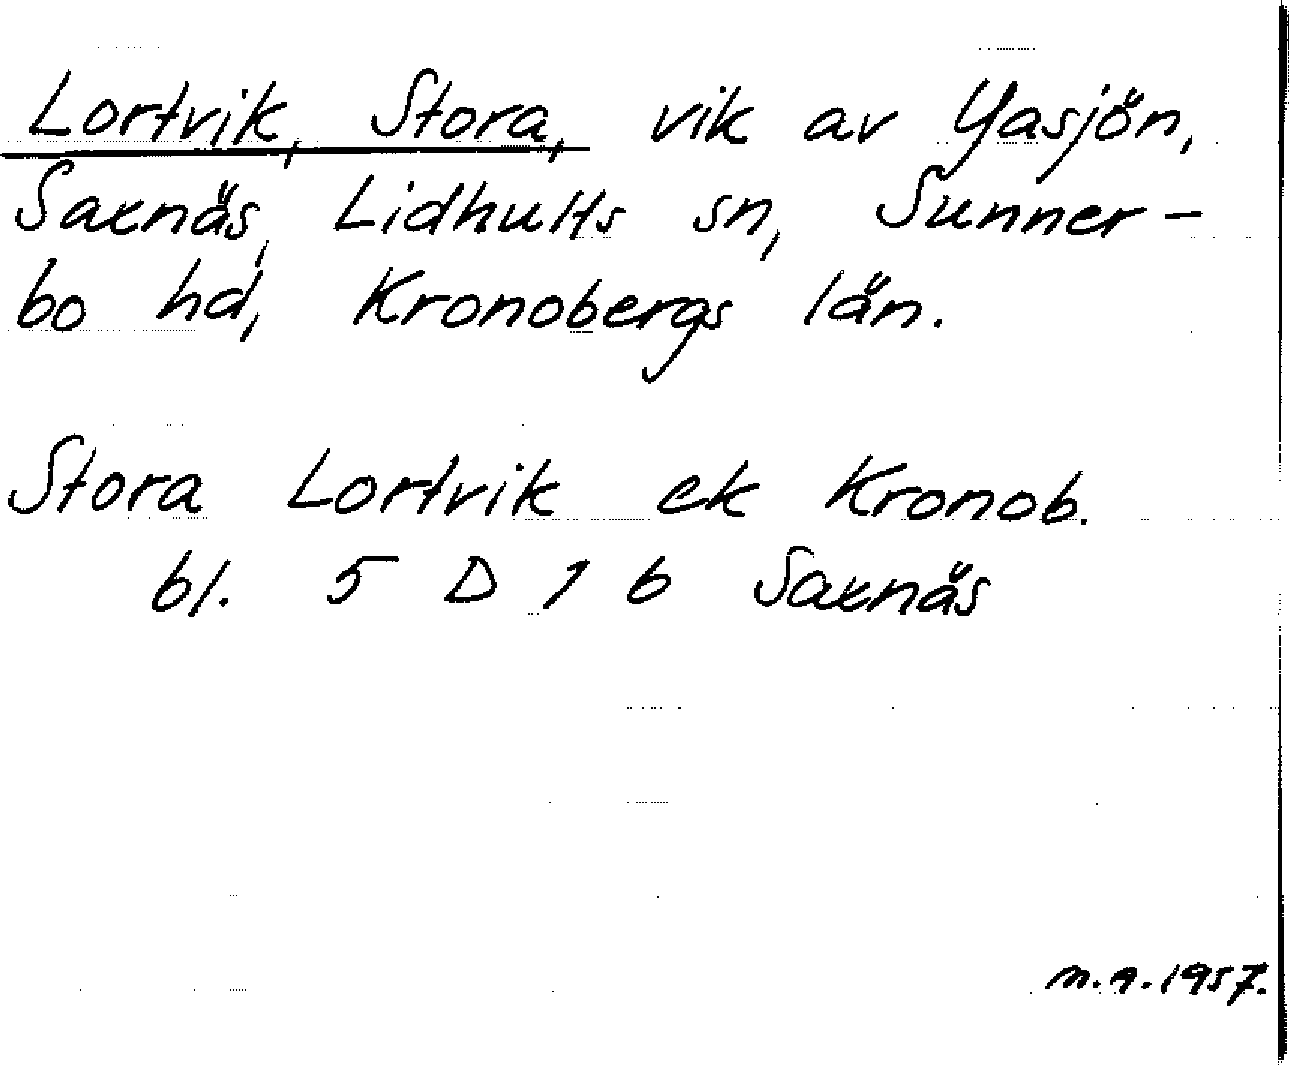 Lortvik, Stora, vik av Yasjön,
Saxnäs, Lidhults sn, Sunner-
bo hd, Kronobergs län.
Stora Lortvik ek Kronob.
bl. 5 D 1 b Saxnäs
M.A. 1957.